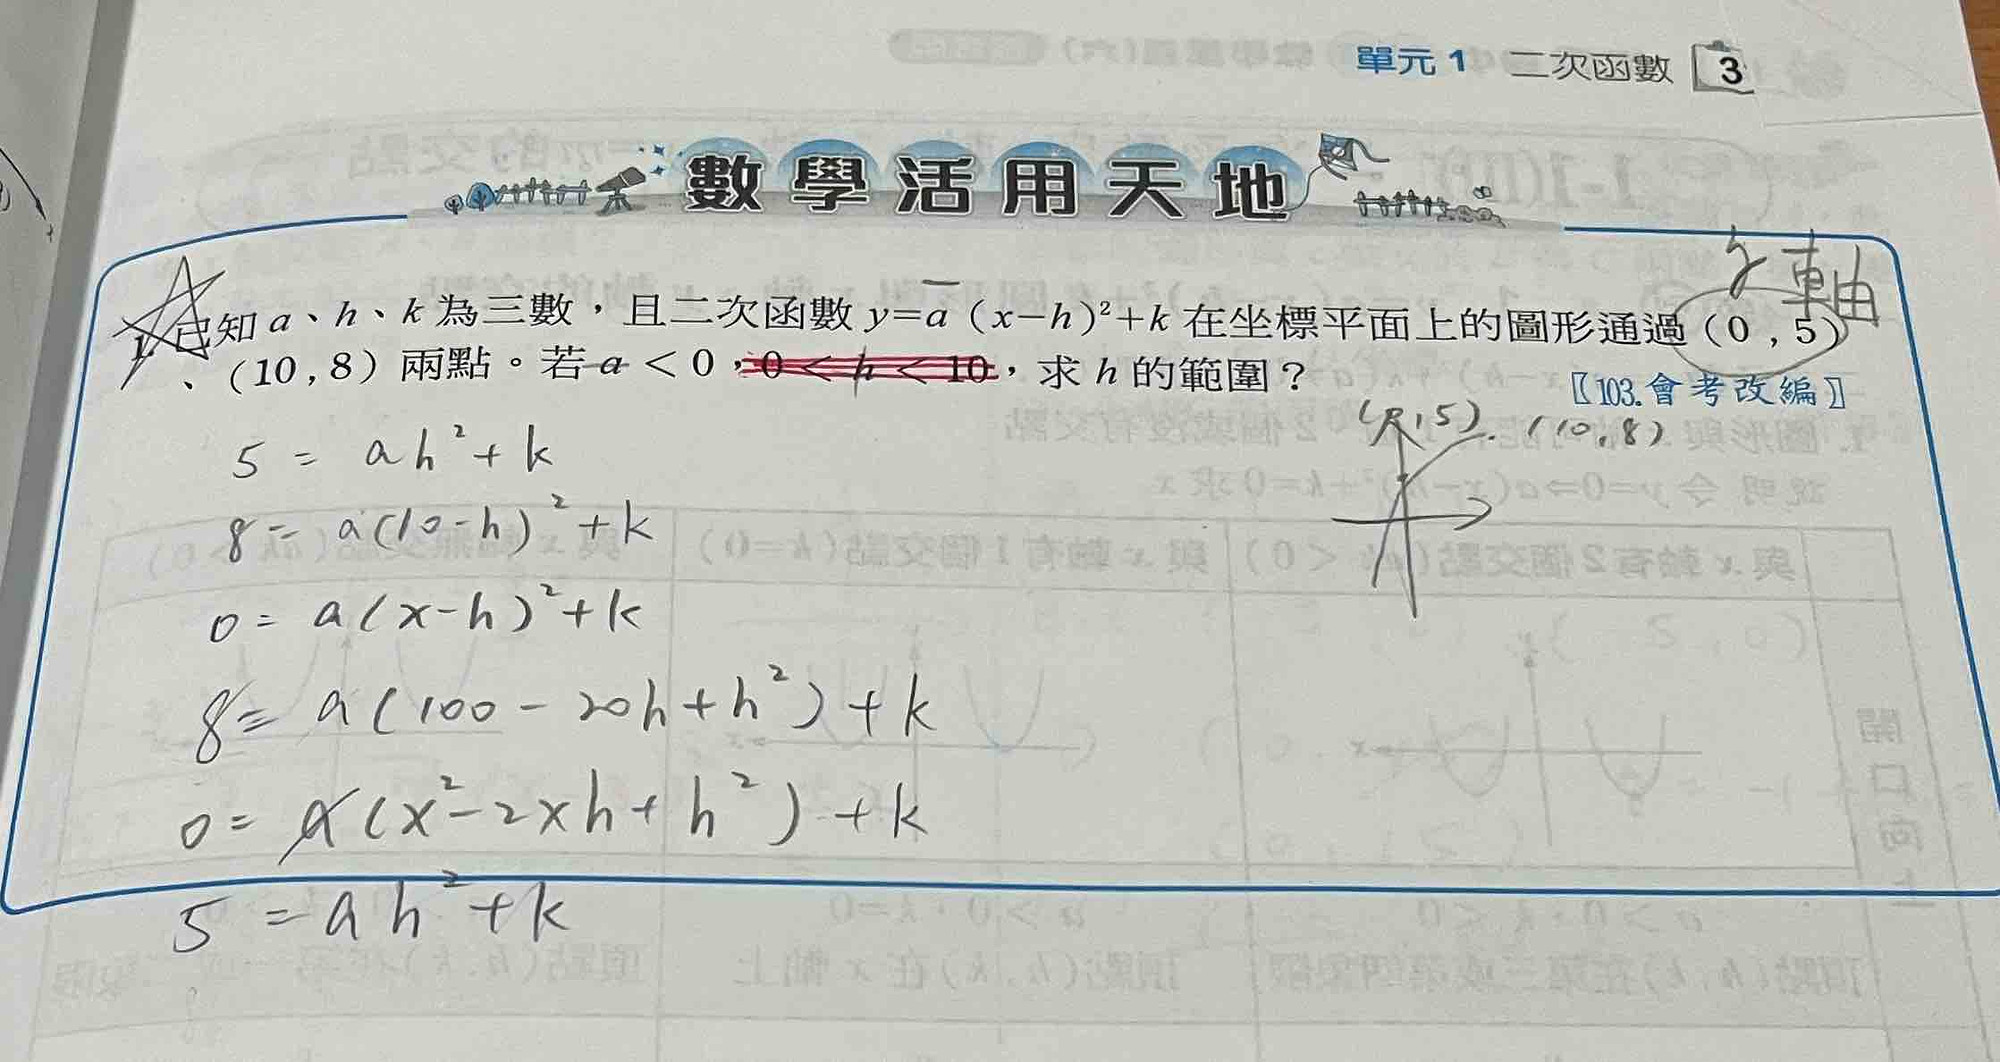 單元 1 二次函數 3
數學活用天地
y 軸
1. 已知 a、h、k 為三數，且二次函數 y=a (x−h)²+k 在坐標平面上的圖形通過 (0 , 5)
、(10 , 8) 兩點。若 a < 0，0 < h < 10，求 h 的範圍？
〖103.會考改編〗
, 5). (10, 8)
5 = ah²+k
8 = a(10-h)²+k
0 = a(x-h)²+k
8 = a(100-20h+h²)+k
0 = a(x²-2xh+h²)+k
5 = ah²+k